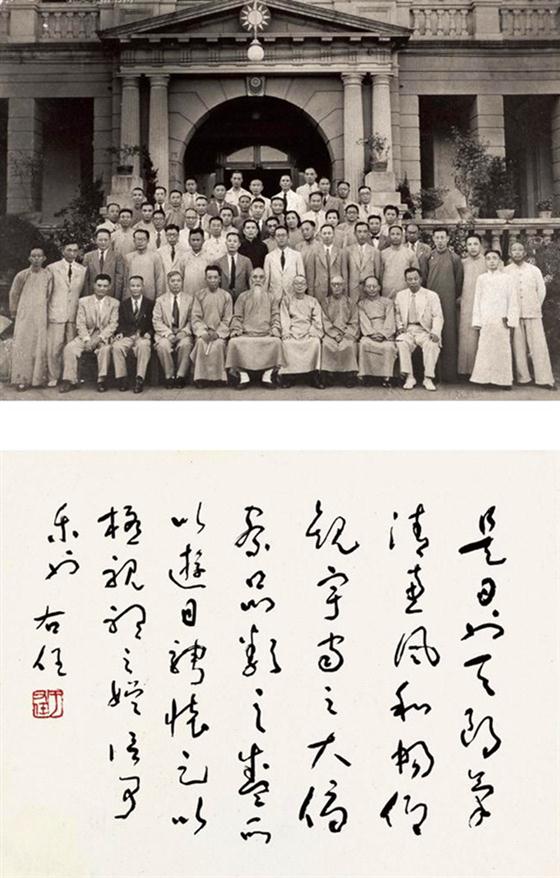 是日也天朗氣
清惠風和暢仰
觀宇宙之大俯
察品類之盛所
以遊目騁懷足以
極視聽之娛信可
樂也 右任